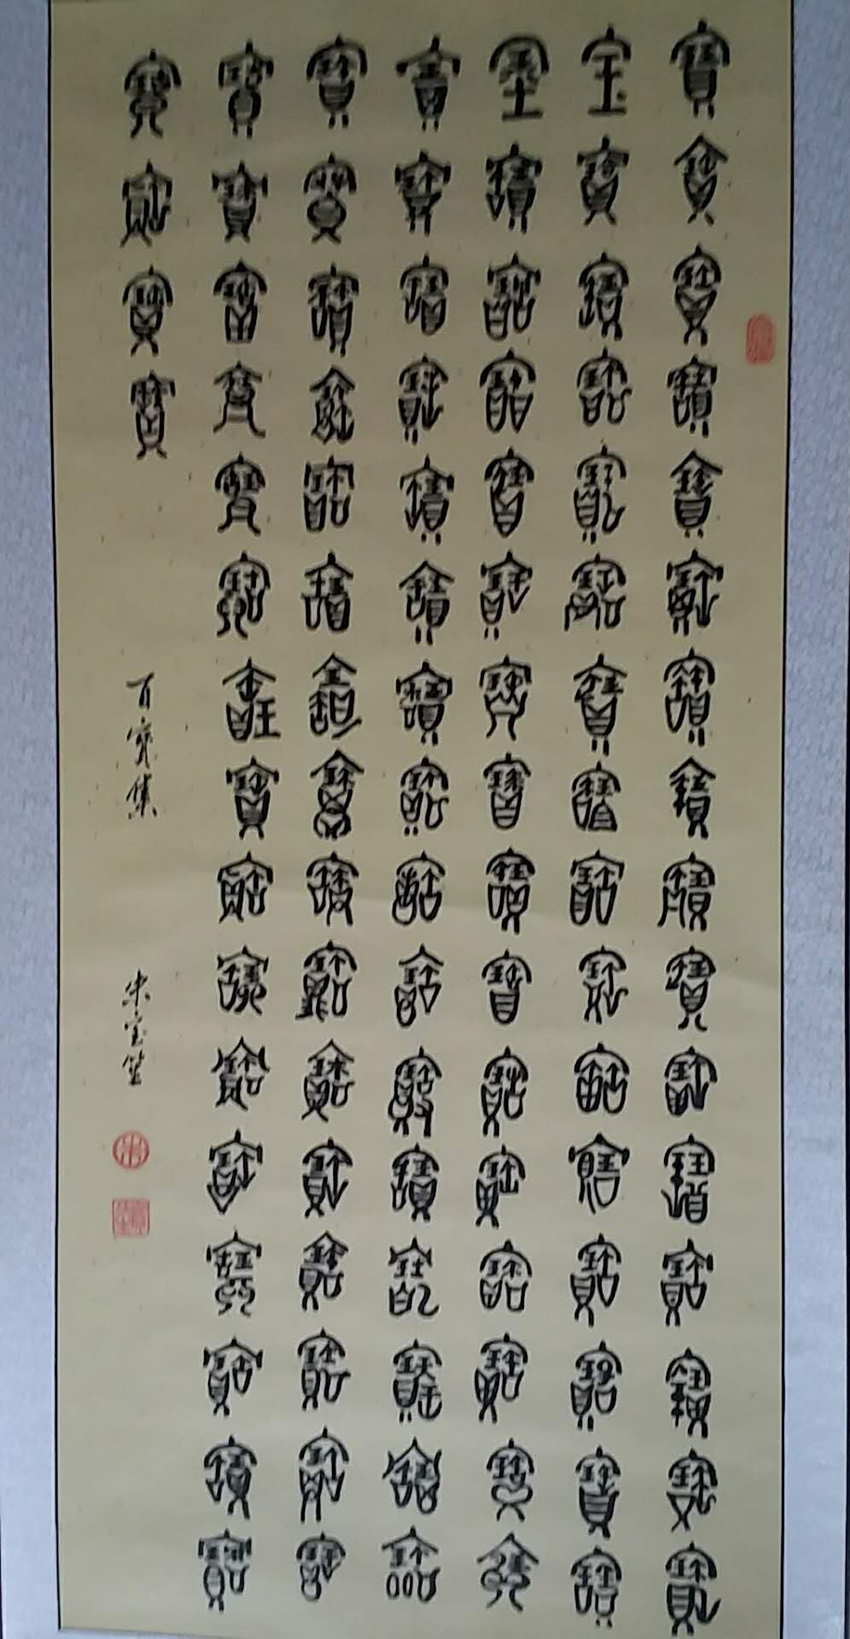 寶寶寶寶寶寶寶寶寶寶寶寶寶寶寶寶
宝寶寶寶寶寶寶寶寶寶寶寶寶寶寶寶
寶寶寶寶寶寶寶寶寶寶寶寶寶寶寶寶
寶寶寶寶寶寶寶寶寶寶寶寶寶寶寶寶
寶寶寶寶寶寶寶寶寶寶寶寶寶寶寶寶
寶寶寶寶寶寶寶寶寶寶寶寶寶寶寶寶
寶寶寶寶
百寶集
朱宝笙
朱